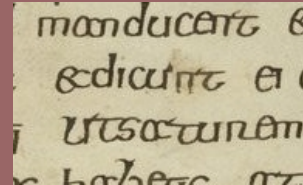 manducent &
&dicunt ei
utsaturem
habetis at